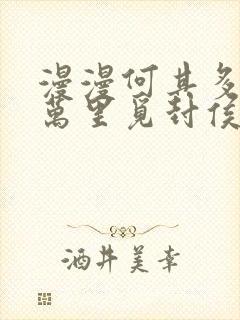 漫漫何其多
萬里覓封侯
酒井美幸